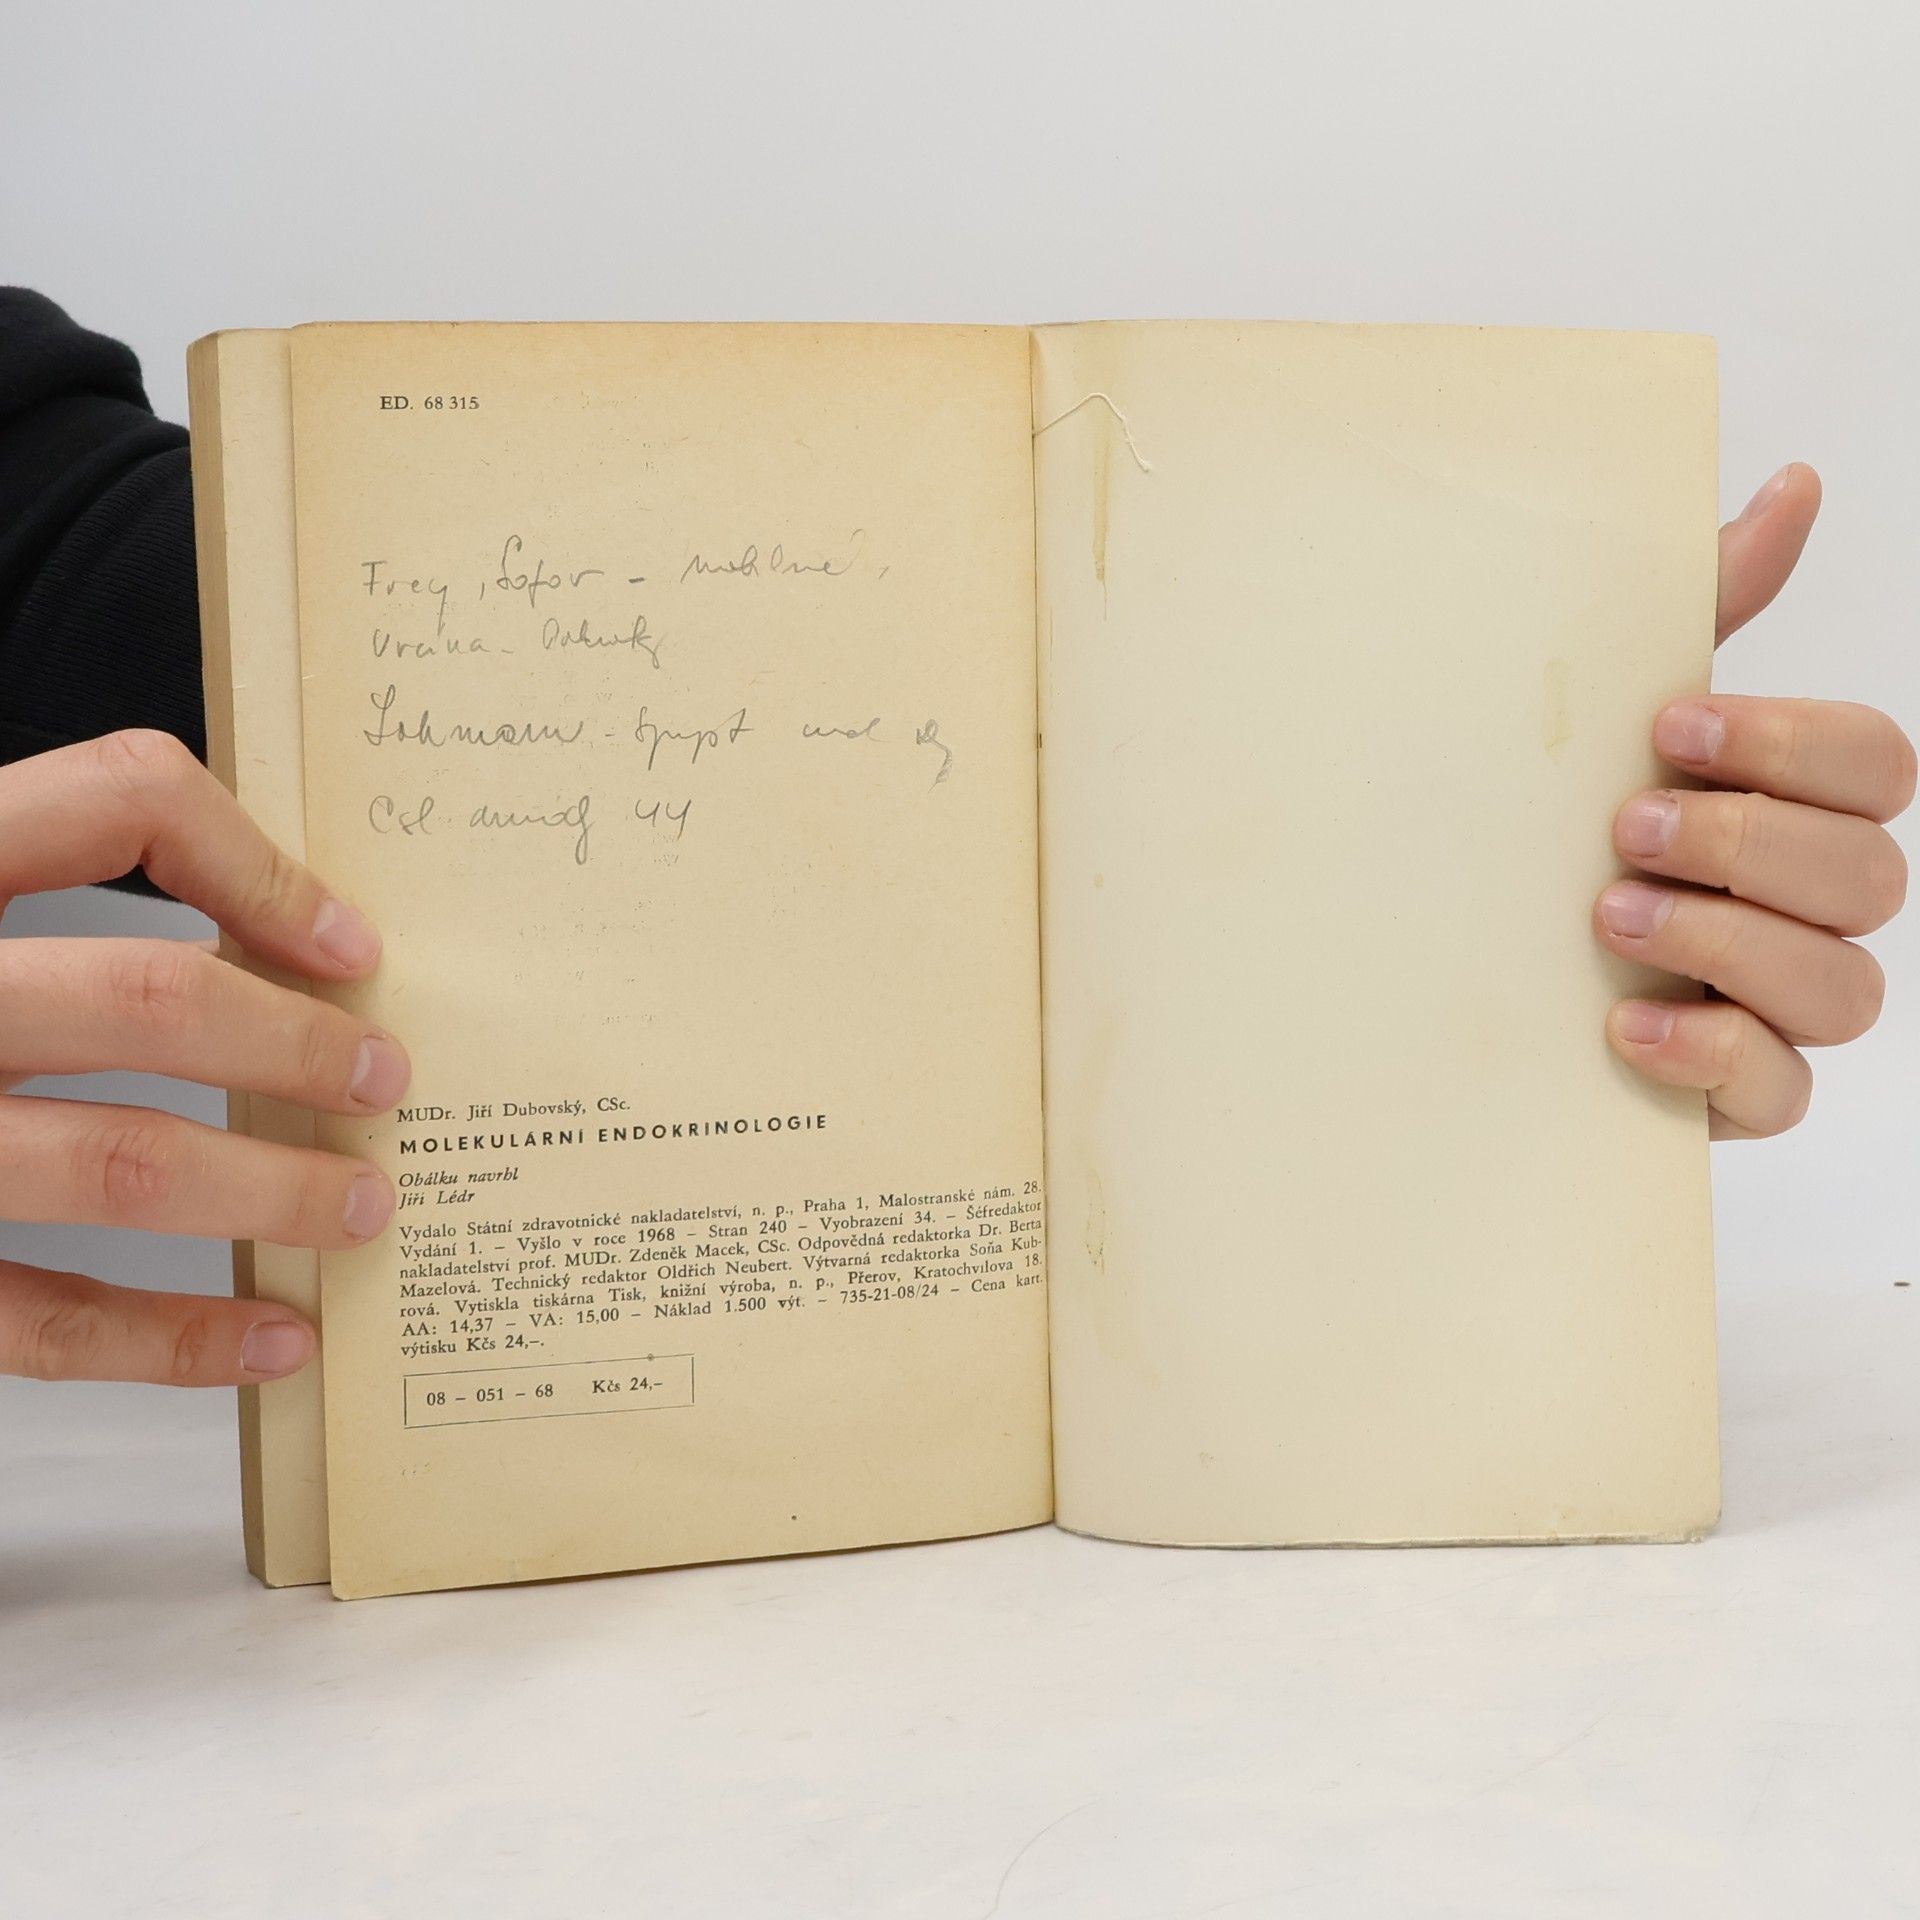 ED. 68 315
Frey, Šofov –
Vrána –
Lohmann –
Csl. 44
MUDr. Jiří Dubovský, CSc.
MOLEKULÁRNÍ ENDOKRINOLOGIE
Obálku navrhl
Jiří Lédr
Vydalo Státní zdravotnické nakladatelství, n. p., Praha 1, Malostranské nám. 28.
Vydání 1. – Vyšlo v roce 1968 – Stran 240 – Vyobrazení 34. – Šéfredaktor
nakladatelství prof. MUDr. Zdeněk Macek, CSc. Odpovědná redaktorka Dr. Berta
Mazelová. Technický redaktor Oldřich Neubert. Výtvarná redaktorka Soňa Kub-
rová. Vytiskla tiskárna Tisk, knižní výroba, n. p., Přerov, Kratochvílova 18.
AA: 14,37 – VA: 15,00 – Náklad 1.500 výt. – 735-21-08/24 – Cena kart.
výtisku Kčs 24,–.
08 – 051 – 68 Kčs 24,–